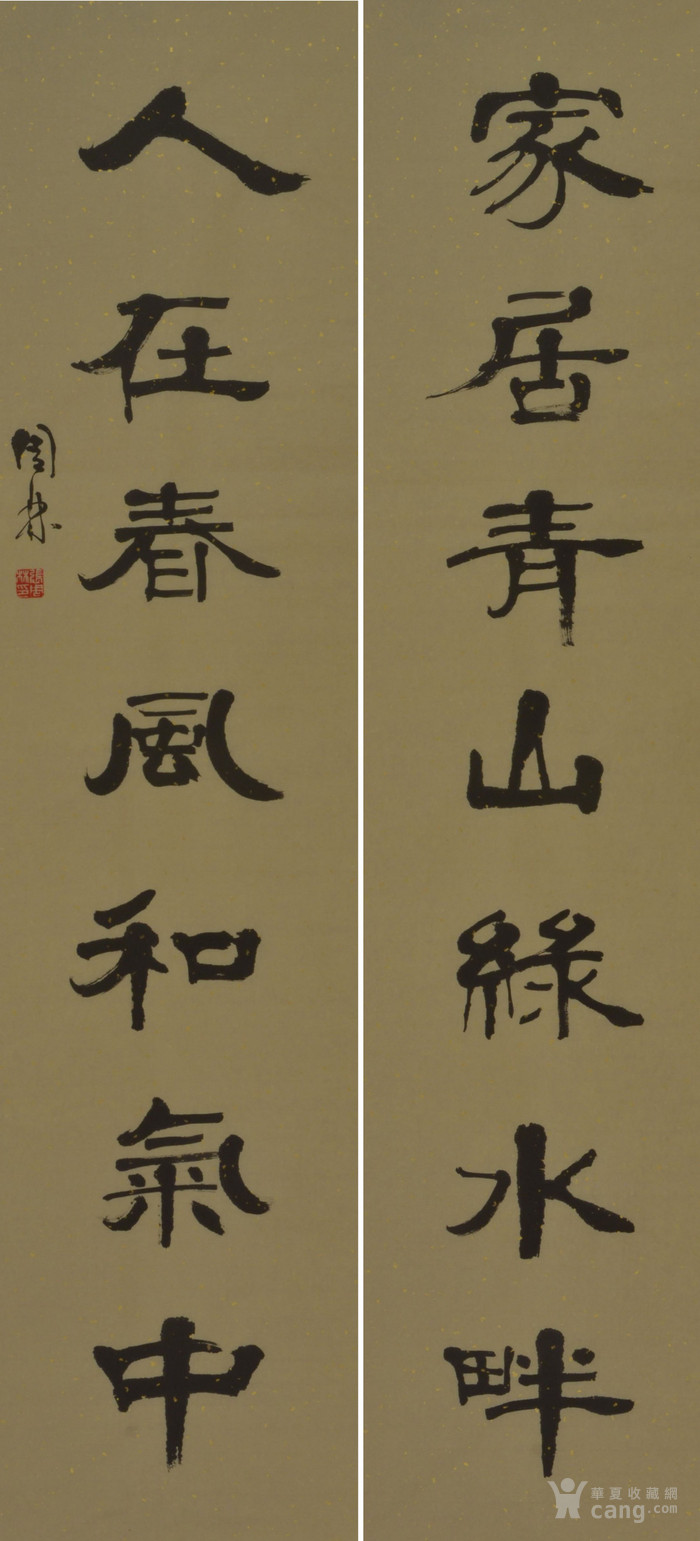 家居青山綠水畔
人在春風和氣中
華夏收藏網
cang.com